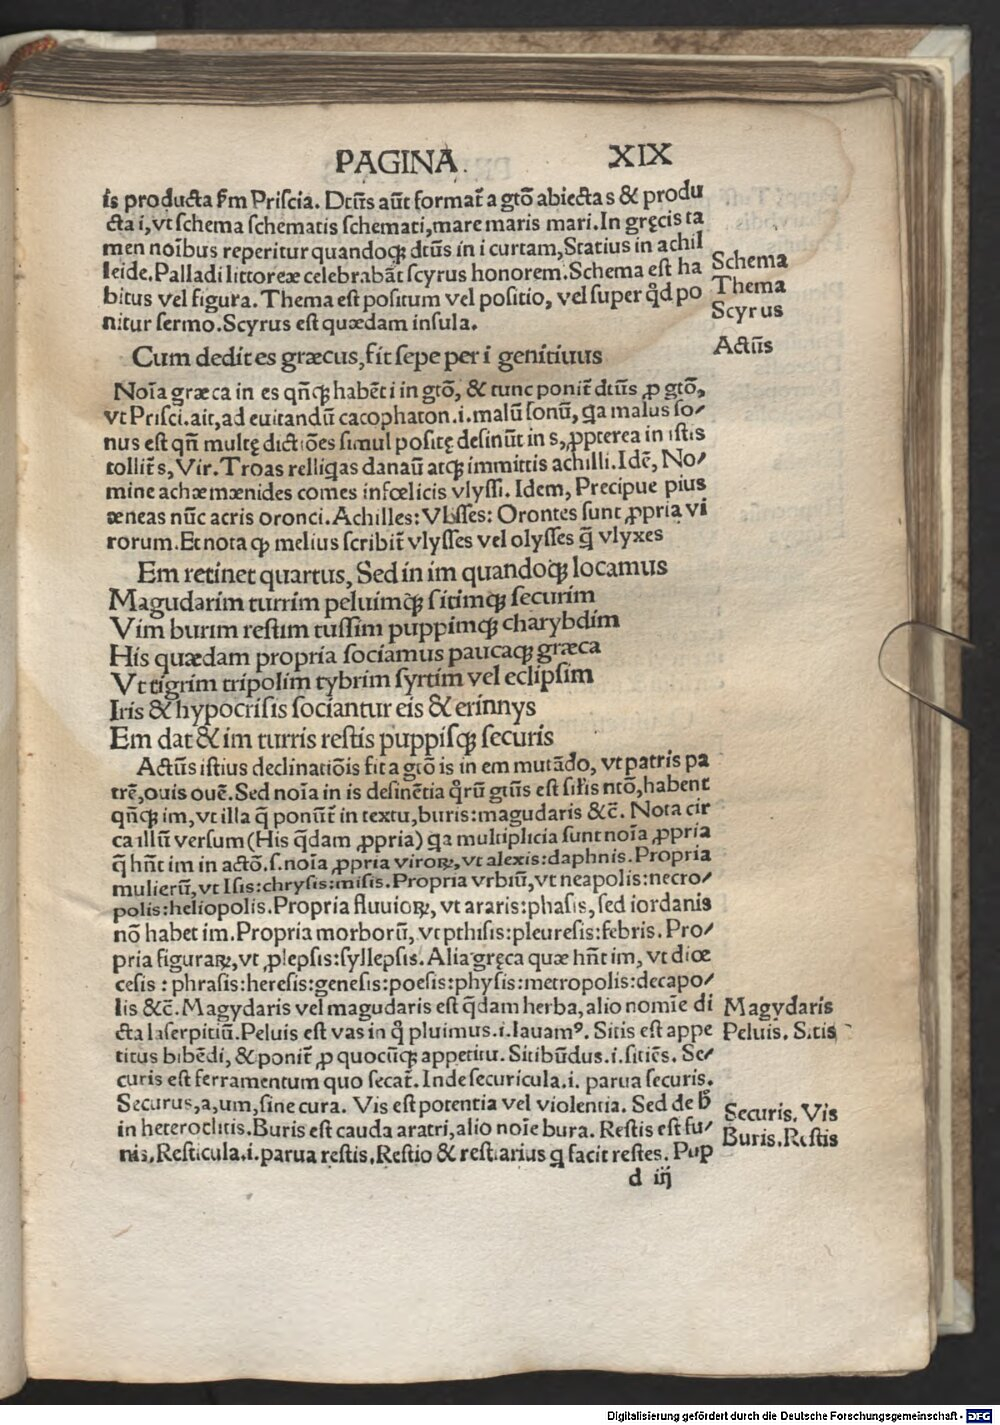 PAGINA. XIX
is producta s̃m Prisciã. Dtũs aũt format̃ a gtõ abiecta s & produ
cta i, vt schema schematis schemati, mare maris mari. In gręcis ta
men noĩbus reperitur quandoqꝫ dtũs in i curtam, Statius in achil
leide. Palladi littoreæ celebrabãt scyrus honorem. Schema est ha
bitus vel figura. Thema est positum vel positio, vel super q̃d po
nitur sermo. Scyrus est quædam insula.
Schema
Thema
Scyrus
Cum dedit es græcus, fit sepe per i genitiuus
Actũs
Noĩa græca in es qñqꝫ habẽt i in gtõ, & tunc ponit̃ dtũs ꝓ gtõ,
vt Prisci. ait, ad euitandũ cacophaton .i. malũ sonũ, qa malus so/
nus est qñ multę dictiões simul positę desinũt in s, ꝓpterea in istis
tollit̃ s, Vir. Troas relliqas danaũ atqꝫ immitis achilli. Idẽ, No/
mine achæmænides comes infœlicis vlyssi. Idem, Precipue pius
æneas nũc acris oronti. Achilles: Vlysses: Orontes sunt ꝓpria vi
rorum. Et nota ꝙ melius scribit̃ vlysses vel olysses q̃ vlyxes
Em retinet quartus, Sed in im quandoqꝫ locamus
Magudarim turrim peluimqꝫ sitimqꝫ securim
Vim burim restim tussim puppimqꝫ charybdim
His quædam propria sociamus paucaqꝫ græca
Vt tigrim tripolim tybrim syrtim vel eclipsim
Iris & hypocrisis sociantur eis & erinnys
Em dat & im turris restis puppisqꝫ securis
Actũs istius declinatiõis fit a gtõ is in em mutãdo, vt patris pa
trẽ, ouis ouẽ. Sed noĩa in is desinẽtia qrũ gtũs est sil̃is ntõ, habent
qñqꝫ im, vt illa q̃ ponũt̃ in textu, buris: magudaris &c̃. Nota cir
ca illũ versum (His q̃dam ꝓpria) qa multiplicia sunt noĩa ꝓpria
q̃ hñt im in actõ. s. noĩa ꝓpria viroꝝ, vt alexis: daphnis. Propria
mulierũ, vt Isis: chrysis: misis. Propria vrbiũ, vt neapolis: necro/
polis: heliopolis. Propria fluuioꝝ, vt araris: phasis, sed iordanis
nõ habet im. Propria morborũ, vt pthisis: pleuresis: febris. Pro/
pria figuraꝝ, vt ꝓlepsis: syllepsis. Alia gręca quæ hñt im, vt diœ
cesis : phrasis: heresis: genesis: poesis: physis: metropolis: decapo/
lis &c̃. Magydaris vel magudaris est q̃dam herba, alio nomĩe di
cta laserpitiũ. Peluis est vas in q̃ pluimus .i. lauamꝰ. Sitis est appe
titus bibẽdi, & ponit̃ ꝓ quocũqꝫ appetitu. Sitibũdus .i. sitiẽs. Se/
curis est ferramentum quo secat̃. Inde securicula .i. parua securis.
Securus, a, um, sine cura. Vis est potentia vel violentia. Sed de b̃
in heteroclitis. Buris est cauda aratri, alio noĩe bura. Restis est fu/
nis. Resticula .i. parua restis. Restio & restiarius q facit restes. Pup
Magydaris
Peluis. Sitis
Securis. Vis
Buris. Restis
d iij
Digitalisierung gefördert durch die Deutsche Forschungsgemeinschaft - DFG